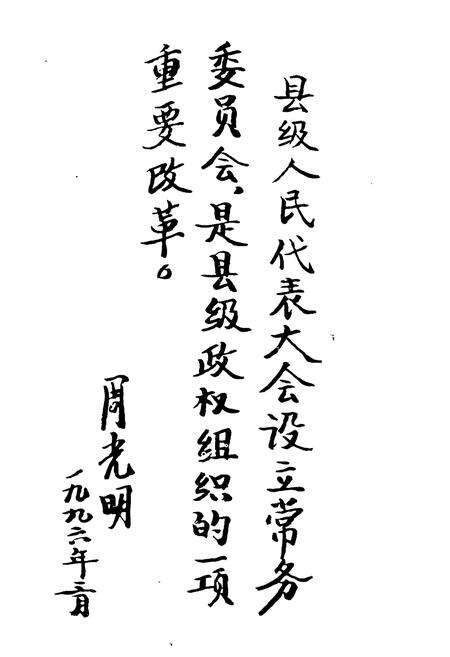 县级人民代表大会设立常务
委员会,是县级政权组织的一项
重要改革。
周光明
一九九六年三月